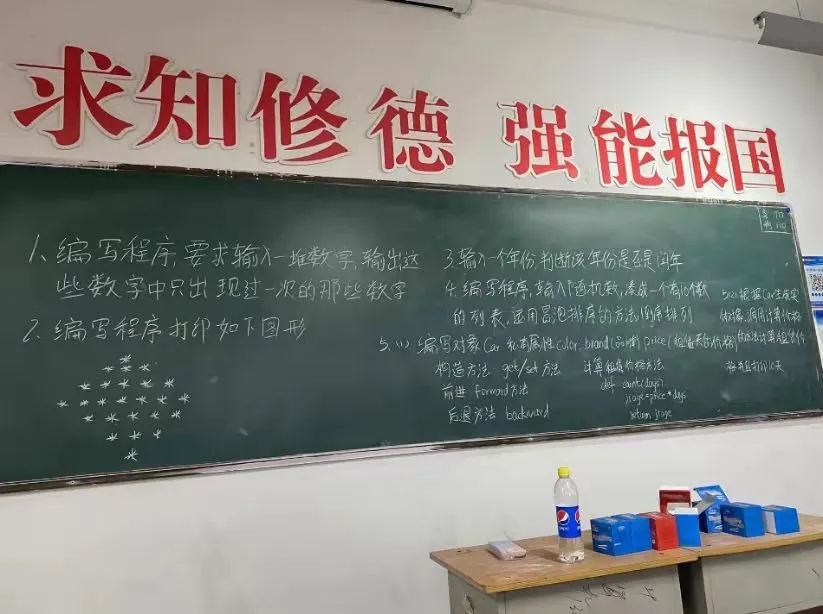 求知修德 强能报国
1、编写程序,要求输入一堆数字,输出这
些数字中只出现过一次的那些数字
2、编写程序打印如下图形
3.输入一个年份,判断该年份是否是闰年
4.编写程序,输入 随机数,凑成一个有10个数
的列表,运用冒泡排序的方法,倒序排列
5.(1)编写对象 Car 私有属性 color、brand(品牌) price
构造方法 get/set 方法
前进 forward方法
后退方法 backward
计算租赁价格方法
def count(days):
jiage=price*days
return jiage
5.(2)根据Car生成实
调用计算价格
方法计算租赁价
10天
pepsi